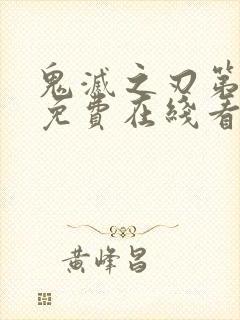 鬼滅之刃第
免費在綫看
黃峰昌